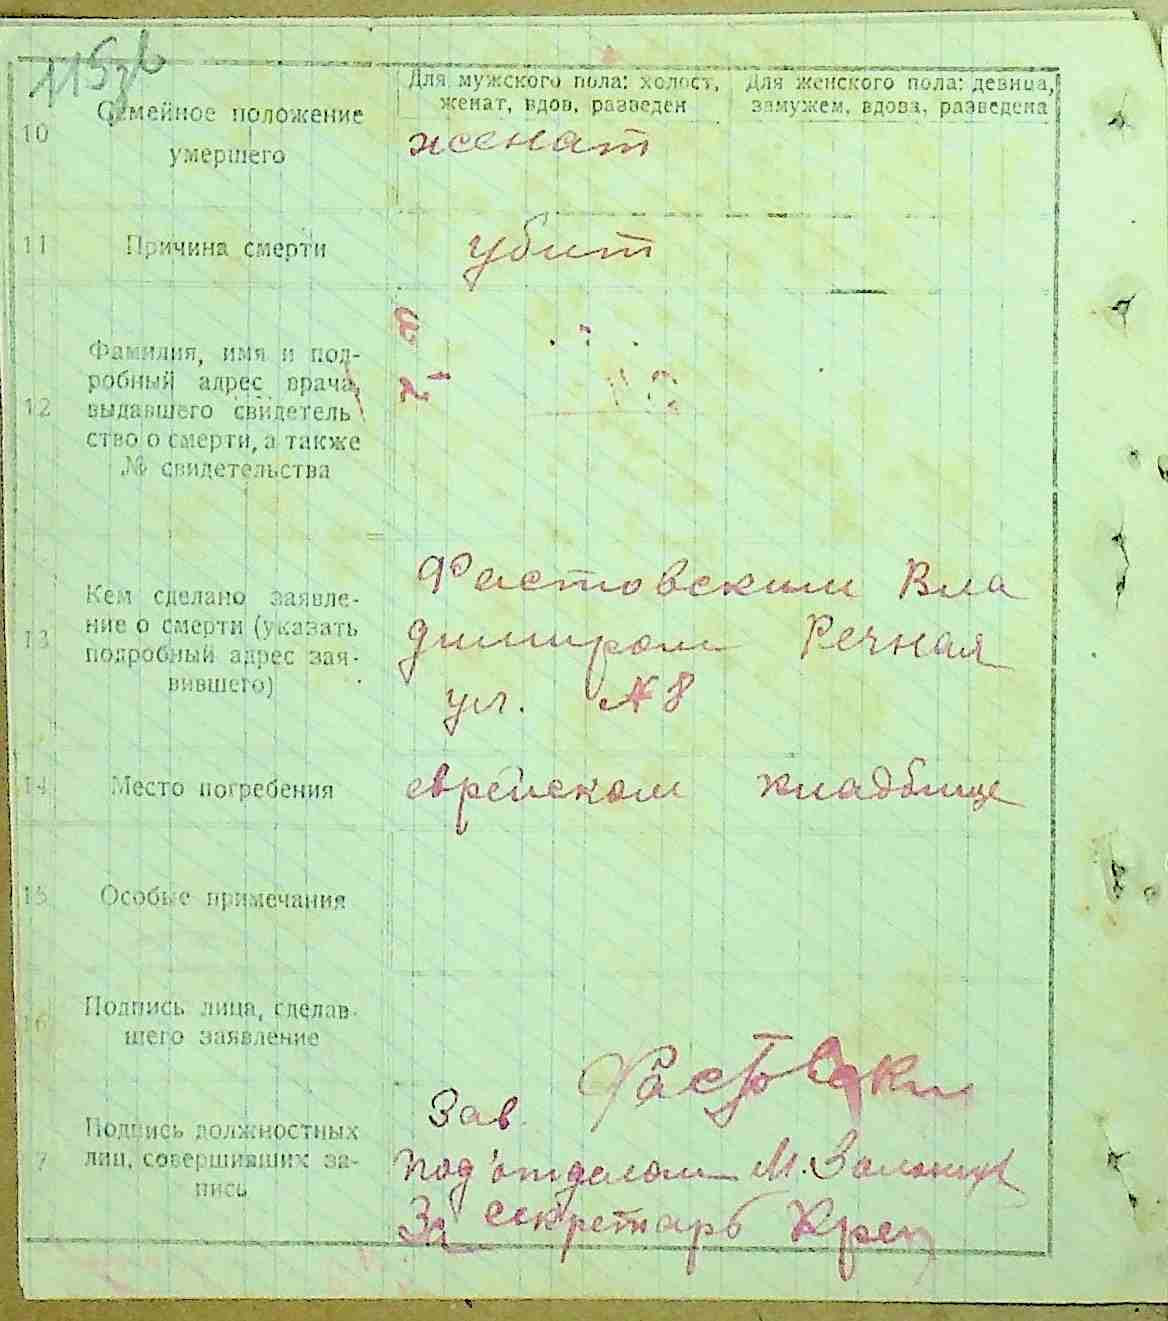 115зв
Для мужского пола: холост, женат, вдов, разведен
Для женского пола: девица, замужем, вдова, разведена
10
Семейное положение умершего
женат
11
Причина смерти
убит
12
Фамилия, имя и под-
робный адрес врача,
выдавшего свидетель
ство о смерти, а также
№ свидетельства
13
Кем сделано заявле-
ние о смерти (указать
подробный адрес зая-
вившего)
Фастовским Вла
димиром Речная
ул. № 8
14
Место погребения
еврейском кладбище
15
Особые примечания
16
Подпись лица, сделав-
шего заявление
Фастовский
7
Подпись должностных
лиц, совершивших за-
пись
Зав.
Под'отделом М.
За секретарь